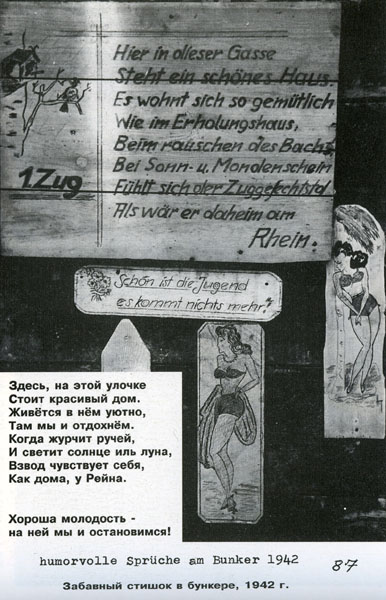 Hier in dieser Gasse
Steht ein schönes Haus.
Es wohnt sich so gemütlich
Wie im Erholungshaus,
Beim rauschen des Bachs
Bei Sonn- u. Mondenschein
Fühlt sich der Zug
Als wär er daheim am
Rhein.
1. Zug
Schön ist die Jugend
es kommt nichts mehr!
Здесь, на этой улочке
Стоит красивый дом.
Живётся в нём уютно,
Там мы и отдохнём.
Когда журчит ручей,
И светит солнце иль луна,
Взвод чувствует себя,
Как дома, у Рейна.
Хороша молодость -
на ней мы и остановимся!
humorvolle Sprüche am Bunker 1942
87
Забавный стишок в бункере, 1942 г.